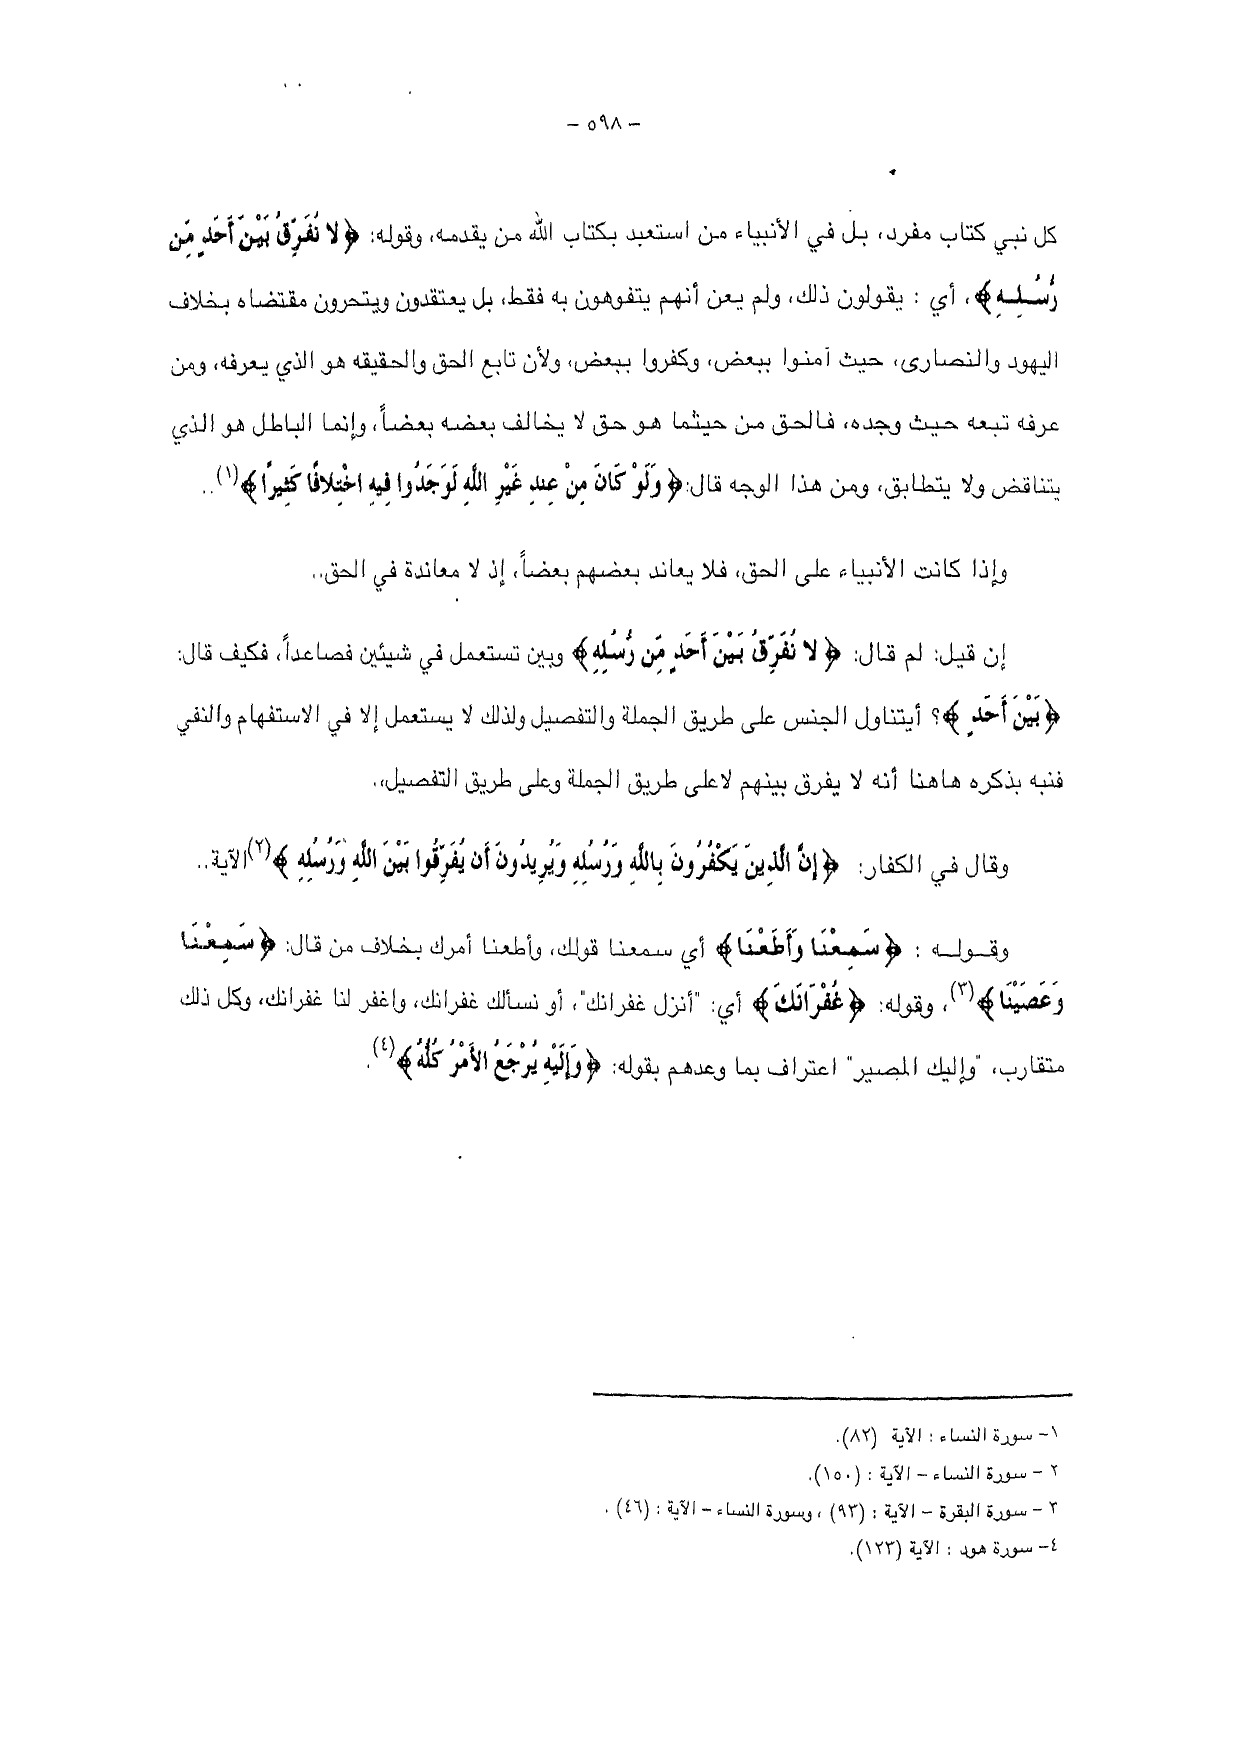 – ٥٩٨ –
كل نبي كتاب مفرد، بل في الأنبياء من استعبد بكتاب الله من يقدمه، وقوله: ﴿ لا نُفَرِّقُ بَيْنَ أَحَدٍ مِّن
رُّسُلِهِ ﴾، أي : يقولون ذلك، ولم يعن أنهم يتفوهون به فقط، بل يعتقدون ويتحرون مقتضاه بخلاف
اليهود والنصارى، حيث آمنوا ببعض، وكفروا ببعض، ولأن تابع الحق والحقيقه هو الذي يعرفه، ومن
عرفه تبعه حيث وجده، فالحق من حيثما هو حق لا يخالف بعضه بعضاً، وإنما الباطل هو الذي
يتناقض ولا يتطابق، ومن هذا الوجه قال:﴿ وَلَوْ كَانَ مِنْ عِندِ غَيْرِ اللَّهِ لَوَجَدُوا فِيهِ اخْتِلافًا كَثِيرًا ﴾(١)..
وإذا كانت الأنبياء على الحق، فلا يعاند بعضهم بعضاً، إذ لا معاندة في الحق..
إن قيل: لم قال: ﴿ لا نُفَرِّقُ بَيْنَ أَحَدٍ مِّن رُّسُلِهِ ﴾ وبين تستعمل في شيئين فصاعداً، فكيف قال:
﴿ بَيْنَ أَحَدٍ ﴾؟ أيتناول الجنس على طريق الجملة والتفصيل ولذلك لا يستعمل إلا في الاستفهام والنفي
فنبه بذكره هاهنا أنه لا يفرق بينهم لاعلى طريق الجملة وعلى طريق التفصيل،.
وقال في الكفار: ﴿ إِنَّ الَّذِينَ يَكْفُرُونَ بِاللَّهِ وَرُسُلِهِ وَيُرِيدُونَ أَن يُفَرِّقُوا بَيْنَ اللَّهِ وَرُسُلِهِ ﴾(٢)الآية..
وقوله : ﴿ سَمِعْنَا وَأَطَعْنَا ﴾ أي سمعنا قولك، وأطعنا أمرك بخلاف من قال: ﴿ سَمِعْنَا
وَعَصَيْنَا ﴾(٣)، وقوله: ﴿ غُفْرَانَكَ ﴾ أي: "أنزل غفرانك"، أو نسألك غفرانك، واغفر لنا غفرانك، وكل ذلك
متقارب، "وإليك المصير" اعتراف بما وعدهم بقوله: ﴿ وَإِلَيْهِ يُرْجَعُ الأَمْرُ كُلُّهُ ﴾(٤).
١– سورة النساء : الآية (٨٢).
٢ – سورة النساء – الآية : (١٥٠).
٣ – سورة البقرة – الآية : (٩٣) ، وسورة النساء – الآية : (٤٦) .
٤– سورة هود : الآية (١٢٣).